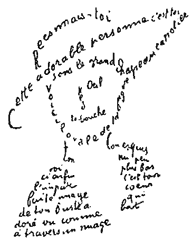 Reconnais-toi
Cette adorable personne c'est toi
Sous le grand chapeau canotier
Œil
Nez
La bouche
Voici l'ovale de ta figure
Ton cou exquis
Voici enfin
l'imparfaite image
de ton buste adoré
vu comme
à travers un nuage
Un peu
plus bas
c'est ton
cœur
qui
bat